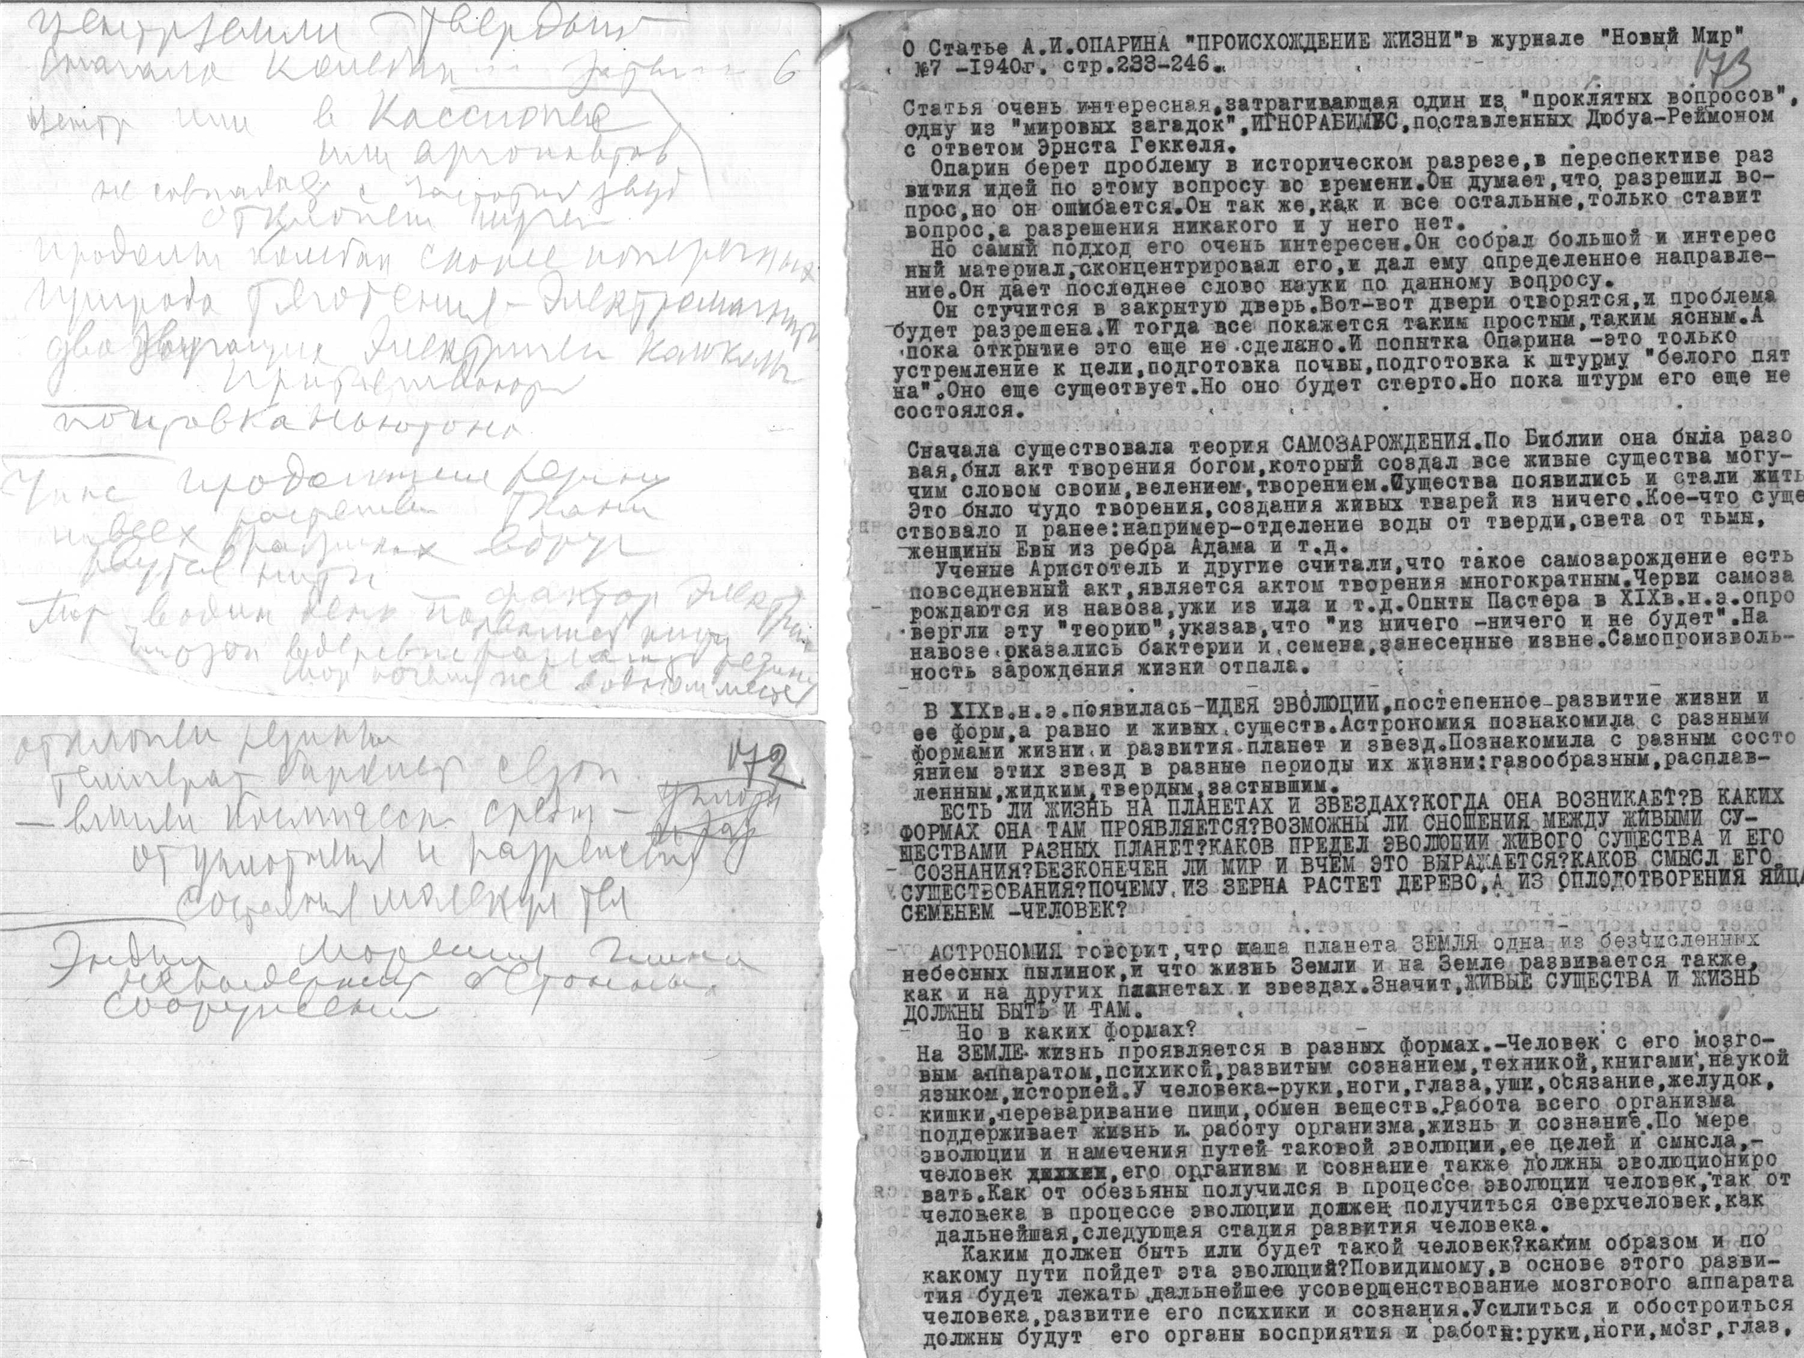 центр земли твердый
сначала колебан затем 6
центр или в Кассиопее
или аргонавтов
не совпадае с частотой звуч
отклонен
продольн колебан скорее поперечных
природа тяготения - Электромагнит
два Электричеч
поправка Ньютона
продолжение резин
ткани
и всех вдруг
нити
Мор в один день фактор Электри
резин
в одном месте
отклонен резинки
172
температ сезон
влиян космическ среды -
от уплотнения и разрежения
состояния молекул тел
сооружен
О Статье А.И.ОПАРИНА "ПРОИСХОЖДЕНИЕ ЖИЗНИ"в журнале "Новый Мир"
№7 -1940г. стр.233-246.
173
Статья очень интересная,затрагивающая один из "проклятых вопросов",
одну из "мировых загадок",ИГНОРАБИМУС,поставленных Дюбуа-Реймоном
с ответом Эрнста Геккеля.
Опарин берет проблему в историческом разрезе,в переспективе раз
вития идей по этому вопросу во времени.Он думает,что разрешил во-
прос,но он ошибается.Он так же,как и все остальные,только ставит
вопрос,а разрешения никакого и у него нет.
Но самый подход его очень интересен.Он собрал большой и интерес
ный материал,сконцентрировал его,и дал ему определенное направле-
ние.Он дает последнее слово науки по данному вопросу.
Он стучится в закрытую дверь.Вот-вот двери отворятся,и проблема
будет разрешена.И тогда все покажется таким простым,таким ясным.А
пока открытие это еще не сделано.И попытка Опарина -это только
устремление к цели,подготовка почвы,подготовка к штурму "белого пят
на".Оно еще существует.Но оно будет стерто.Но пока штурм его еще не
состоялся.
Сначала существовала теория САМОЗАРОЖДЕНИЯ.По Библии она была разо
вая,был акт творения богом,который создал все живые существа могу-
чим словом своим,велением,творением.Существа появились и стали жить
Это было чудо творения,создания живых тварей из ничего.Кое-что суще
ствовало и ранее:например-отделение воды от тверди,света от тьмы,
женщины Евы из ребра Адама и т.д.
Ученые Аристотель и другие считали,что такое самозарождение есть
повседневный акт,является актом творения многократным.Черви самоза
рождаются из навоза,ужи из ила и т.д.Опыты Пастера в XIXв.н.э.опро
вергли эту "теорию",указав,что "из ничего -ничего и не будет".На
навозе оказались бактерии и семена,занесенные извне.Самопроизволь-
ность зарождения жизни отпала.
В XIXв.н.э.появилась-ИДЕЯ ЭВОЛЮЦИИ,постепенное развитие жизни и
ее форм,а равно и живых существ.Астрономия познакомила с разными
формами жизни и развития планет и звезд.Познакомила с разным состо
янием этих звезд в разные периоды их жизни:газообразным,расплав-
ленным,жидким,твердым,застывшим.
ЕСТЬ ЛИ ЖИЗНЬ НА ПЛАНЕТАХ И ЗВЕЗДАХ?КОГДА ОНА ВОЗНИКАЕТ?В КАКИХ
ФОРМАХ ОНА ТАМ ПРОЯВЛЯЕТСЯ?ВОЗМОЖНЫ ЛИ СНОШЕНИЯ МЕЖДУ ЖИВЫМИ СУ-
ЩЕСТВАМИ РАЗНЫХ ПЛАНЕТ?КАКОВ ПРЕДЕЛ ЭВОЛЮЦИИ ЖИВОГО СУЩЕСТВА И ЕГО
СОЗНАНИЯ?БЕЗКОНЕЧЕН ЛИ МИР И ВЧЕМ ЭТО ВЫРАЖАЕТСЯ?КАКОВ СМЫСЛ ЕГО
СУЩЕСТВОВАНИЯ?ПОЧЕМУ ИЗ ЗЕРНА РАСТЕТ ДЕРЕВО,А ИЗ ОПЛОДОТВОРЕНИЯ ЯЙЦА
СЕМЕНЕМ -ЧЕЛОВЕК?
АСТРОНОМИЯ говорит,что наша планета ЗЕМЛЯ одна из безчисленных
небесных пылинок,и что жизнь Земли и на Земле развивается также,
как и на других планетах и звездах.Значит,ЖИВЫЕ СУЩЕСТВА И ЖИЗНЬ
ДОЛЖНЫ БЫТЬ И ТАМ.
Но в каких формах?
На ЗЕМЛЕ жизнь проявляется в разных формах.-Человек с его мозго-
вым аппаратом,психикой,развитым сознанием,техникой,книгами,наукой
языком,историей.У человека-руки,ноги,глаза,уши,осязание,желудок,
кишки,переваривание пищи,обмен веществ.Работа всего организма
поддерживает жизнь и работу организма,жизнь и сознание.По мере
эволюции и намечения путей таковой эволюции,ее целей и смысла,-
человек должен,его организм и сознание также должны эволюциониро
вать.Как от обезьяны получился в процессе эволюции человек,так от
человека в процессе эволюции должен получиться сверхчеловек,как
дальнейшая,следующая стадия развития человека.
Каким должен быть или будет такой человек?каким образом и по
какому пути пойдет эта эволюций?Повидимому,в основе этого разви-
тия будет лежать дальнейшее усовершенствование мозгового аппарата
человека,развитие его психики и сознания.Усилиться и обостроиться
должны будут его органы восприятия и работы:руки,ноги,мозг,глаз,